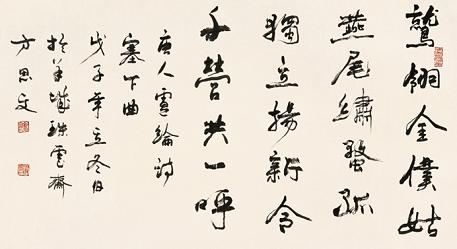 鷲翎金僕姑
燕尾繡蝥弧
獨立揚新令
千營共一呼
唐人盧綸詩
塞下曲
戊子年立冬日
於羊城雲齋
方思